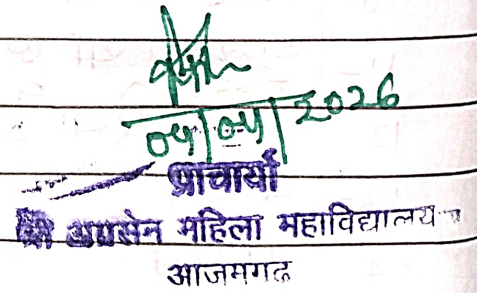 04/04/2026
प्राचार्या
श्री अग्रसेन महिला महाविद्यालय
आजमगढ